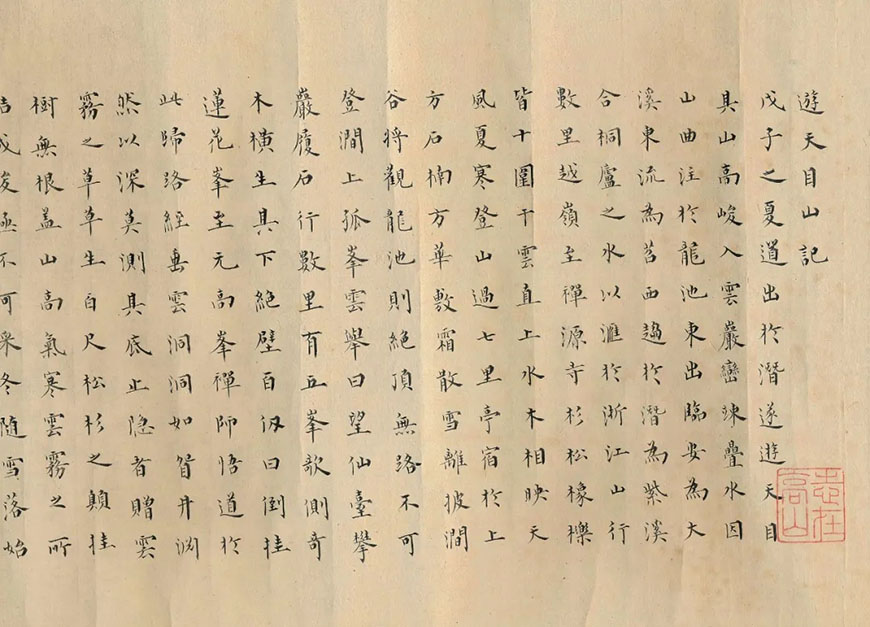 遊天目山記
戊子之夏道出於潛遂遊天目
具山高峻入雲巖巒竦疊水因
山曲注於龍池東出臨安為大
溪東流為苕西趨於潛為紫溪
合桐廬之水以滙於浙江山行
數里越嶺至禪源寺杉松橡櫟
皆十圍干雲直上水木相映天
風夏寒登山過七里亭宿於上
方石楠方華敷霜散雪離披澗
谷將觀龍池則絕頂無路不可
登澗上孤峯雲舉曰望仙臺攀
巖履石行數里有五峯欹側奇
木橫生具下絕壁百仞曰倒挂
蓮花峯至元高峯禪師悟道於
此歸路經垂雲洞洞如眢井淵
然以深莫測其底止隐者贈雲
霧之草草生百尺松杉之顛挂
樹無根蓋山高氣寒雲霧之所
結成峻極不可采冬隨雪落始
志在高山